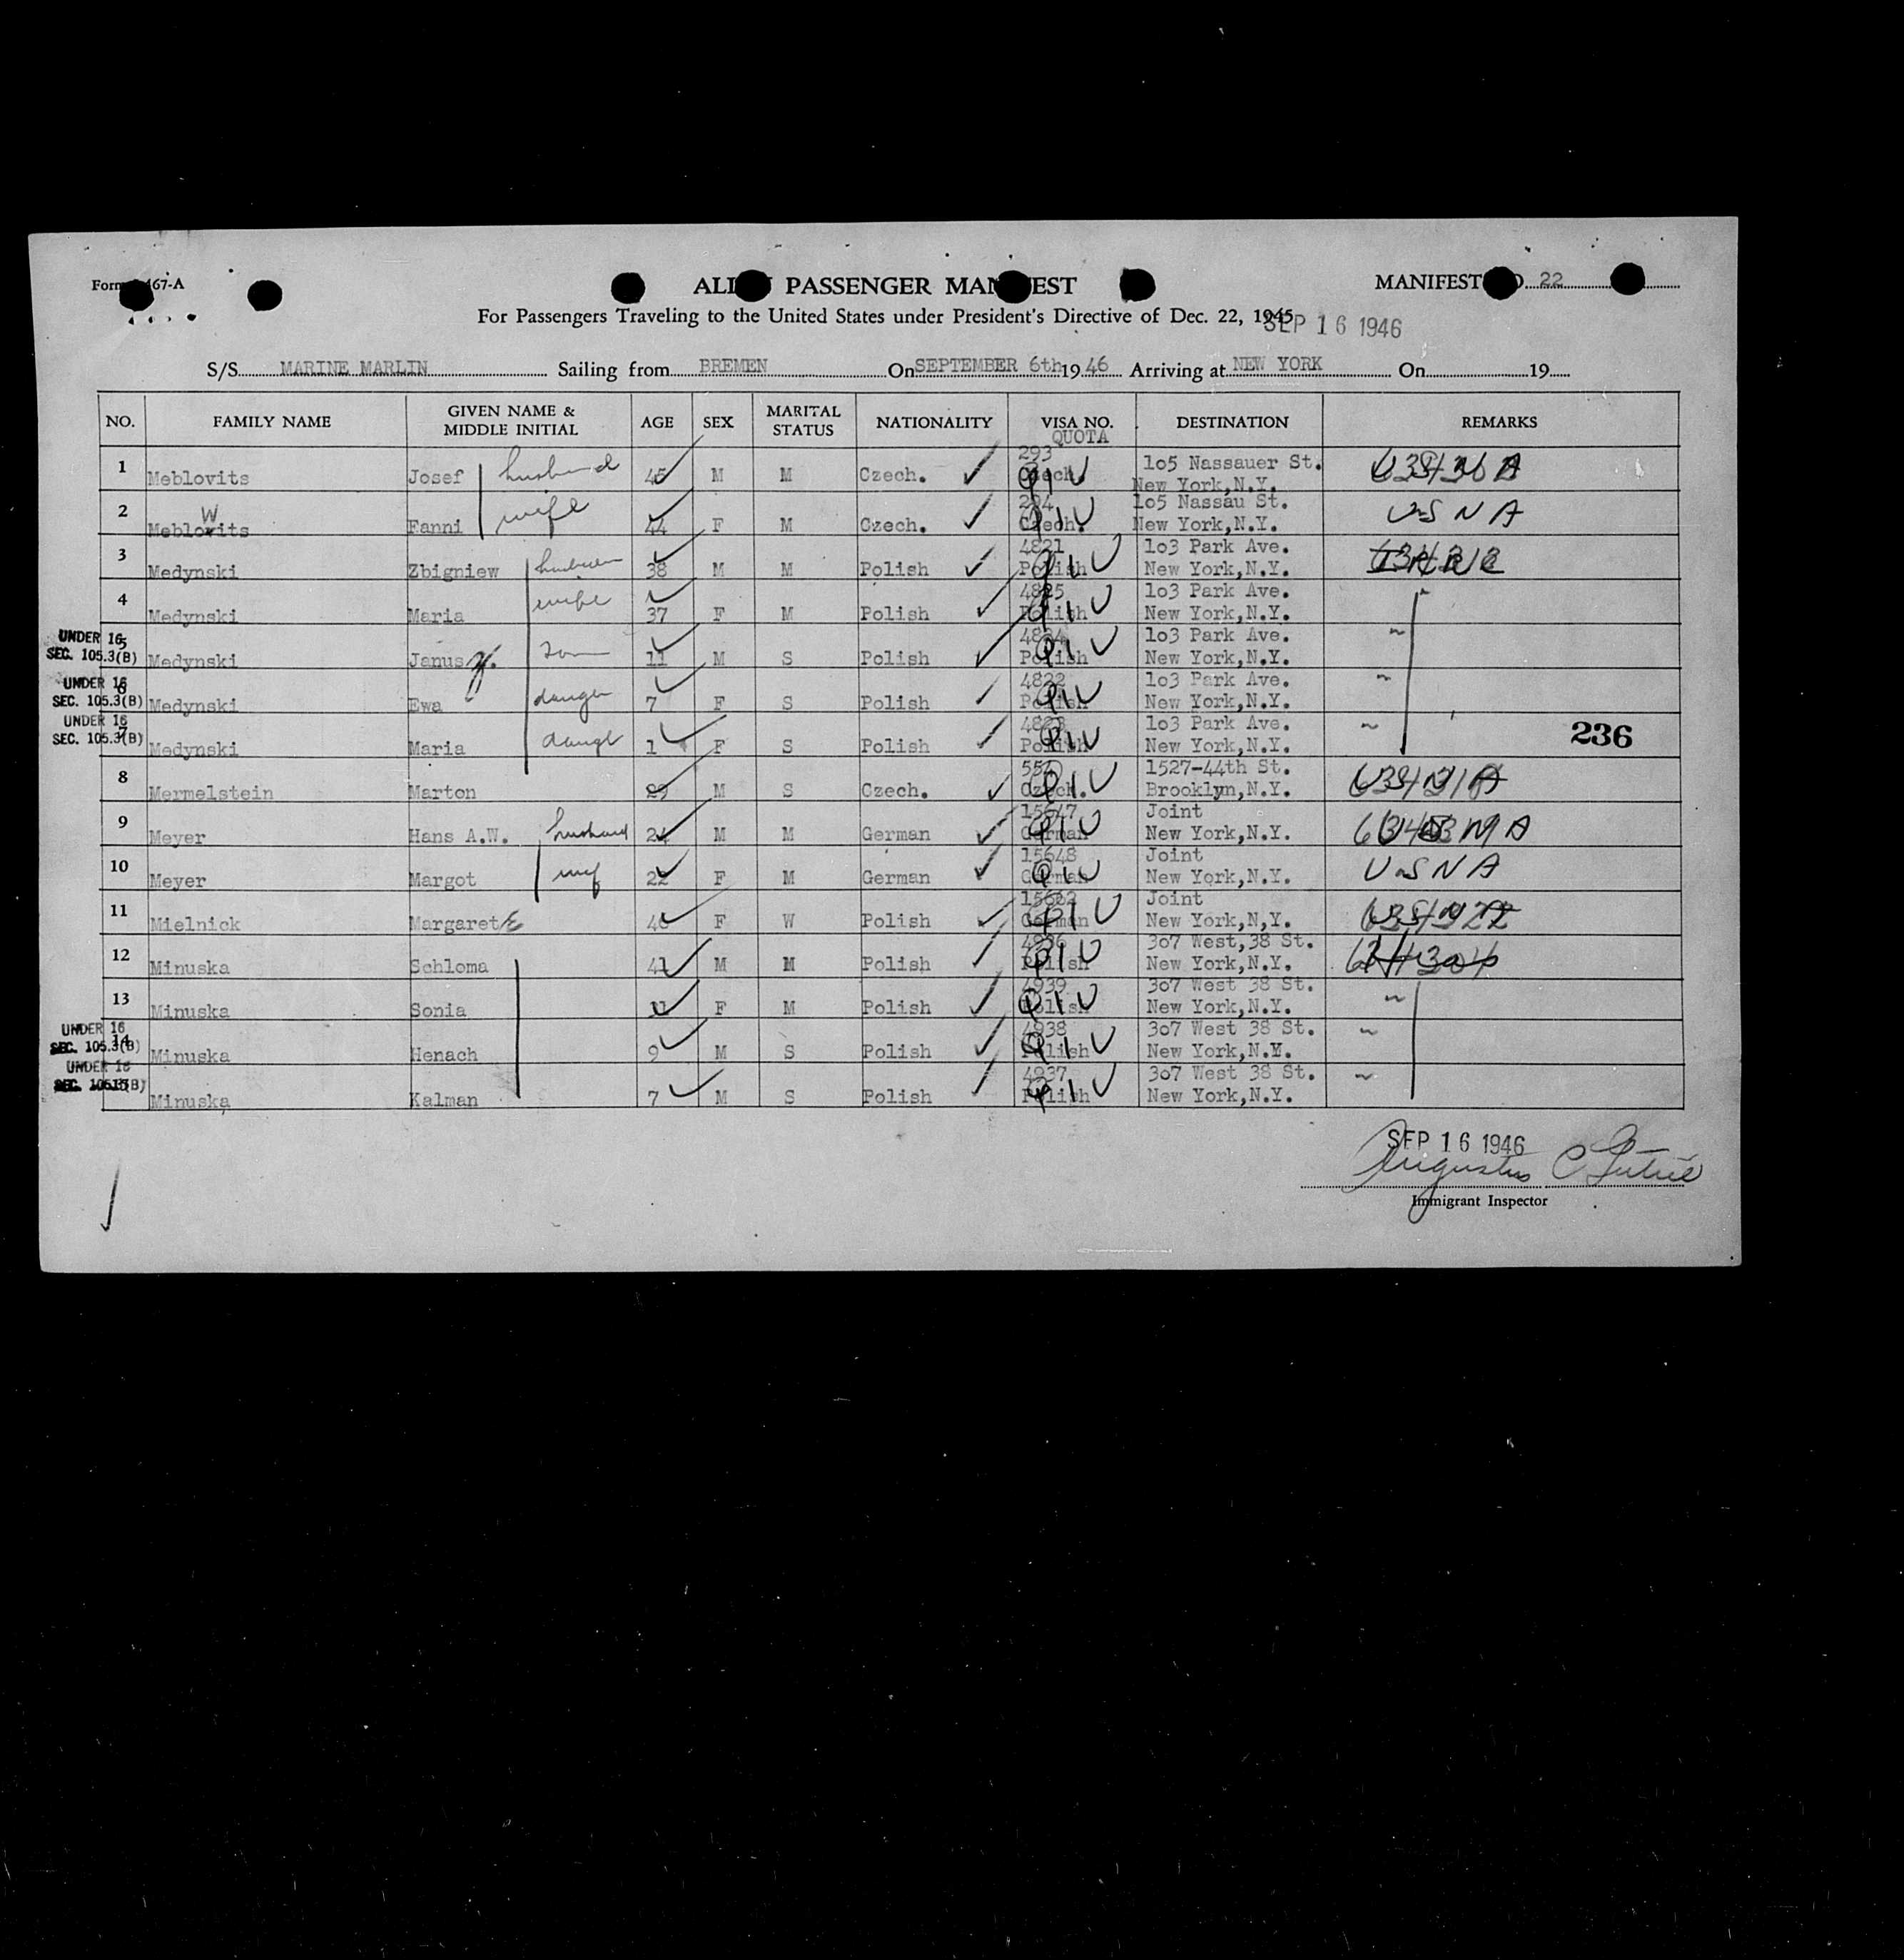 ALIEN PASSENGER MANIFEST
MANIFEST NO. 22
For Passengers Traveling to the United States under President's Directive of Dec. 22, 1945
SEP 16 1946
S/S MARINE MARLIN Sailing from BREMEN On SEPTEMBER 6th 19 46 Arriving at NEW YORK On 19
NO. FAMILY NAME GIVEN NAME & MIDDLE INITIAL AGE SEX MARITAL STATUS NATIONALITY VISA NO. QUOTA DESTINATION REMARKS
293 105 Nassauer St.
1 Meblovits Josef husband 45 M M Czech. Czech. New York,N.Y.
W 294 105 Nassau St. USNA
2 Meblovits Fanni wife 44 F M Czech. Czech. New York,N.Y.
4821 103 Park Ave.
3 Medynski Zbigniew 38 M M Polish Polish New York,N.Y.
4825 103 Park Ave.
4 Medynski Maria wife 37 F M Polish Polish New York,N.Y.
UNDER 16 4824 103 Park Ave.
SEC. 105.3(B) 5 Medynski Janus son 11 M S Polish Polish New York,N.Y.
UNDER 16 4822 103 Park Ave.
SEC. 105.3(B) 6 Medynski Ewa 7 F S Polish Polish New York,N.Y.
UNDER 16 4823 103 Park Ave.
SEC. 105.3(B) 7 Medynski Maria 1 F S Polish Polish New York,N.Y. 236
1527-44th St.
8 Mermelstein Marton 29 M S Czech. Czech. Brooklyn,N.Y.
15647 Joint
9 Meyer Hans A.W. husband 24 M M German German New York,N.Y.
15648 Joint
10 Meyer Margot 22 F M German German New York,N.Y. USNA
Joint
11 Mielnick Margaret E 40 F W Polish German New York,N,Y.
4936 307 West,38 St.
12 Minuska Schloma 41 M M Polish Polish New York,N.Y.
4939 307 West 38 St.
13 Minuska Sonia F M Polish Polish New York,N.Y.
UNDER 16 4938 307 West 38 St.
SEC. 105.3(B) 14 Minuska Henach 9 M S Polish Polish New York,N.Y.
UNDER 16 4937 307 West 38 St.
SEC. 105.3(B) 15 Minuska Kalman 7 M S Polish Polish New York,N.Y.
SEP 16 1946
Augustus C
Immigrant Inspector